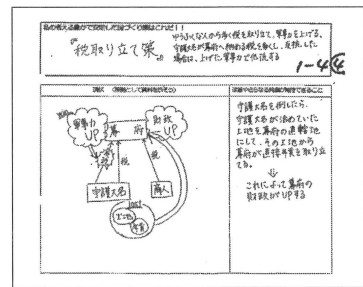 私の考える豊かで安定した国づくり策はこれだ!!
『税取り立て策』
ゆうふくな人から多く税を取り立て、軍事力を上げる。
守護大名が幕府へ納める税を多くし、反抗した
場合は、上げた軍事力で対抗する
1-4④
軍事力
UP
幕府
財政
UP
税
税
守護大名
商人
守護大名を倒したら、
守護大名が治めていた
土地を幕府の直轄地
にして、その土地から
幕府が直接年貢を取り立
てる。
⇓
これによって幕府の
財政がUPする